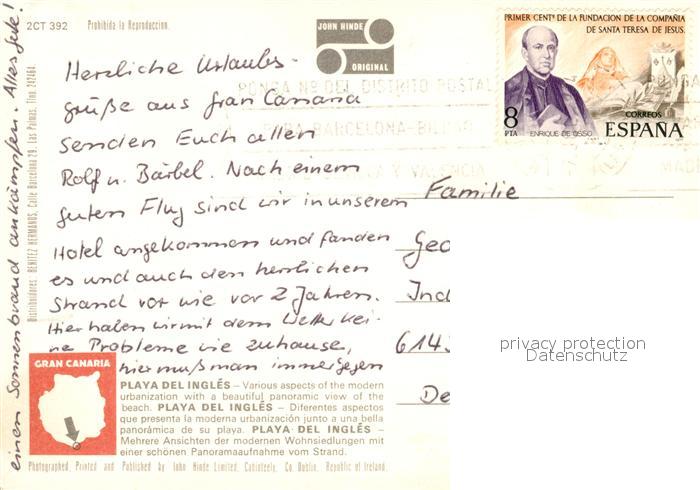 2CT 392 Prohibida la Reproduccion.
JOHN HINDE
ORIGINAL
PRIMER CENTº DE LA FUNDACION DE LA COMPAÑIA
DE SANTA TERESA DE JESUS.
8
PTA
ENRIQUE DE OSSO
CORREOS
ESPAÑA
PONGA Nº DEL DISTRITO POSTAL
PARA BARCELONA-BIL
Y VALENCIA
Herzliche Urlaubs-
grüße aus Gran Canaria
senden Euch allen
Rolf u. Bärbel. Nach einem
guten Flug sind wir in unserem
Hotel angekommen und fanden
es und auch den herrlichen
Strand vor wie vor 2 Jahren.
Hier haben wir mit dem Wetter kei-
ne Probleme wie zuhause,
hier muß man immer gegen
einen Sonnenbrand ankämpfen. Alles Gute!
Familie
Geo
Ind
614
De
privacy protection
Datenschutz
Distribuidores: BENITEZ HERMANOS, Calle Barcelona 29, Las Palmas, Tfno. 242464.
GRAN CANARIA
PLAYA DEL INGLÉS – Various aspects of the modern
urbanization with a beautiful panoramic view of the
beach. PLAYA DEL INGLÉS – Diferentes aspectos
que presenta la moderna urbanización junto a una bella
panorámica de su playa. PLAYA DEL INGLÉS –
Mehrere Ansichten der modernen Wohnsiedlungen mit
einer schönen Panoramaaufnahme vom Strand.
Photographed, Printed and Published by John Hinde Limited, Cabinteely, Co. Dublin, Republic of Ireland.